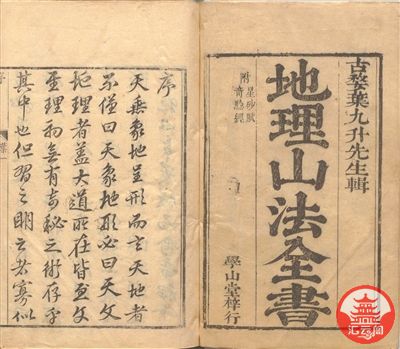 古婺葉九升先生輯
地理山法全書
附
星砂賦
奇驗經
學山堂梓行
序
天垂象地呈形而言天地者
不僅曰天象地形必曰天文
地理者蓋大道所在皆至文
至理初無有奇秘之術存乎
其中也但習之明之者寡似
汇云阁